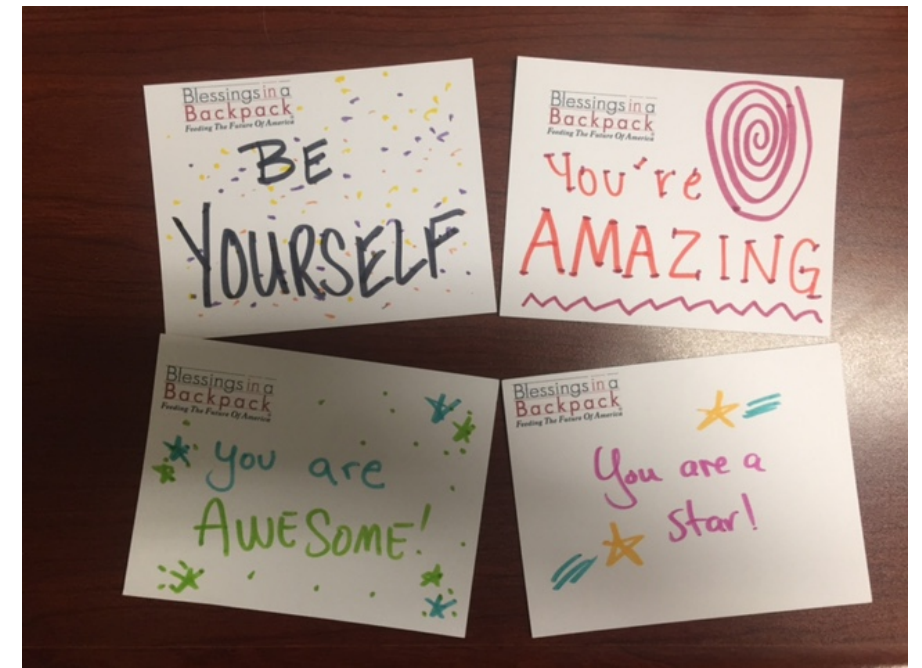 Blessings in a
Backpack
Feeding The Future Of America
BE
YOURSELF
Blessings in a
Backpack
Feeding The Future Of America
You're
AMAZING
Blessings in a
Backpack
Feeding The Future Of America
you are
AWESOME!
Blessings in a
Backpack
Feeding The Future Of America
You are a
star!